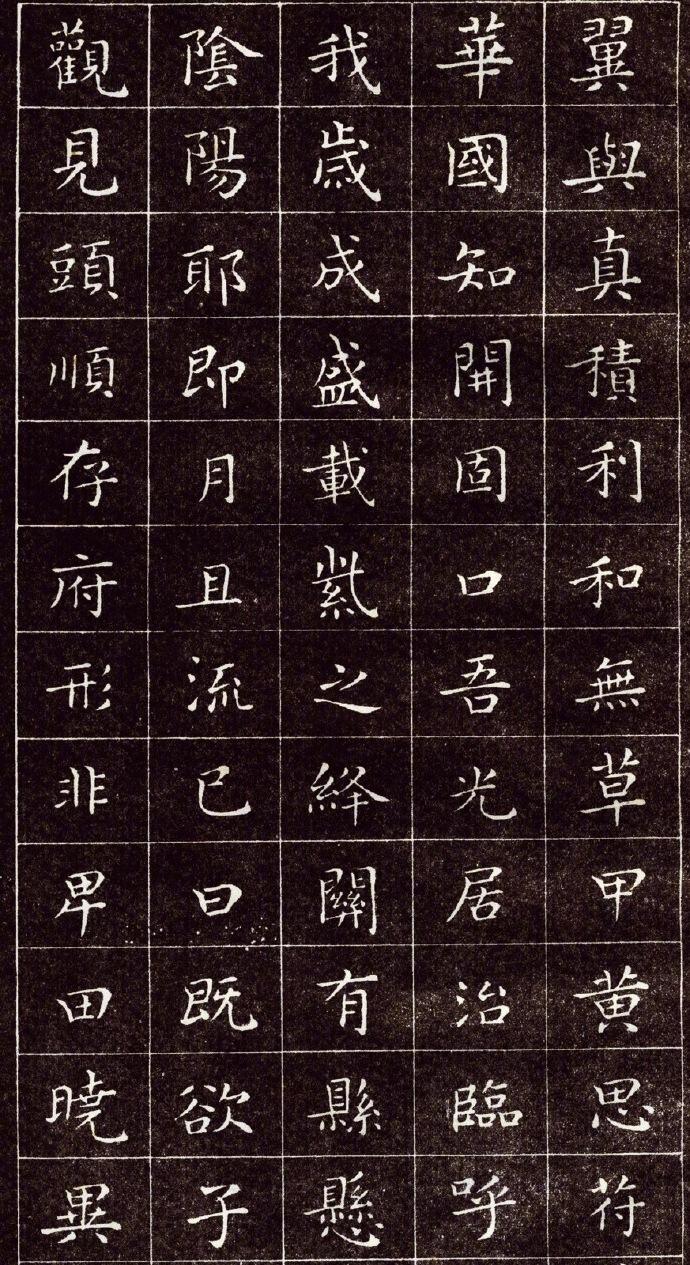 翼與真積利和無草甲黄思苻
華國知開固口吾光居治臨呼
我歲成盛載紫之絳關有縣懸
陰陽耶即月且流已曰既欲子
觀見頭順存府形非畀田曉異